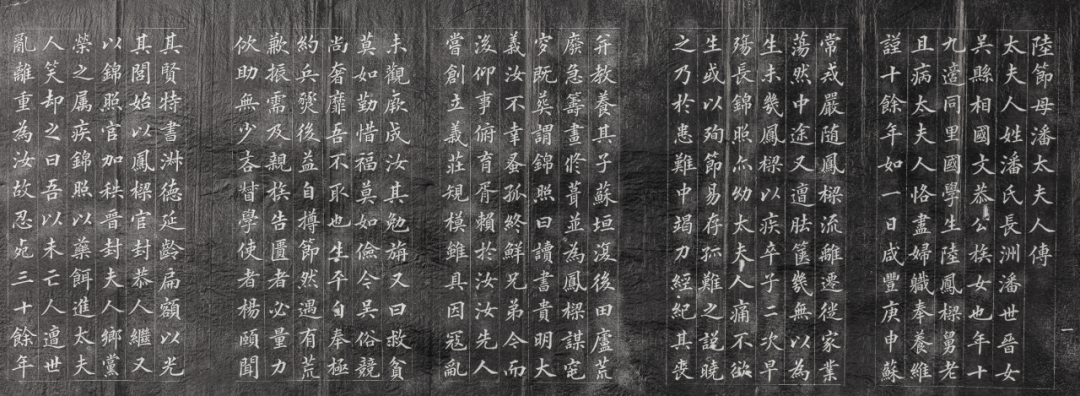 陸節母潘太夫人傳
太夫人姓潘氏長洲潘世晉女
吳縣相國文恭公族女也年十
九適同里國學生陸鳳樑舅老
且病太夫人恪盡婦職奉養維
謹十餘年如一日咸豐庚申蘇
常戒嚴隨鳳樑流離遷徙家業
蕩然中途又遭胠篋幾無以為
生未幾鳳樑以疾卒子二次早
殤長錦照亦幼太夫人痛不欲
生或以殉節易存孤難之說曉
之乃於患難中竭力經紀其喪
并教養其子蘇垣復後田廬荒
廢急籌畫修葺並為鳳樑謀窀
穸既葬謂錦照曰讀書貴明大
義汝不幸蚤孤終鮮兄弟今而
後仰事俯育胥賴於汝汝先人
嘗創立義莊規模雖具因寇亂
未觀厥成汝其勉旃又曰救貧
莫如勤惜福莫如儉今吳俗競
尚奢靡吾不取也生平自奉極
約兵燹後益自撙節然遇有荒
歉振需及親族告匱者必量力
佽助無少吝督學使者楊頤聞
其賢特書淋德延齡扁額以光
其閭始以鳳樑官封恭人繼又
以錦照官加秩晉封夫人鄉黨
榮之属疾錦照以藥餌進太夫
人笑却之曰吾以未亡人遭世
亂離重為汝故忍死三十餘年
一